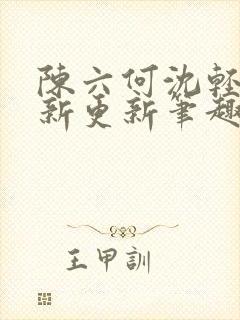 陳六何沈輕
新更新筆趣
王甲訓